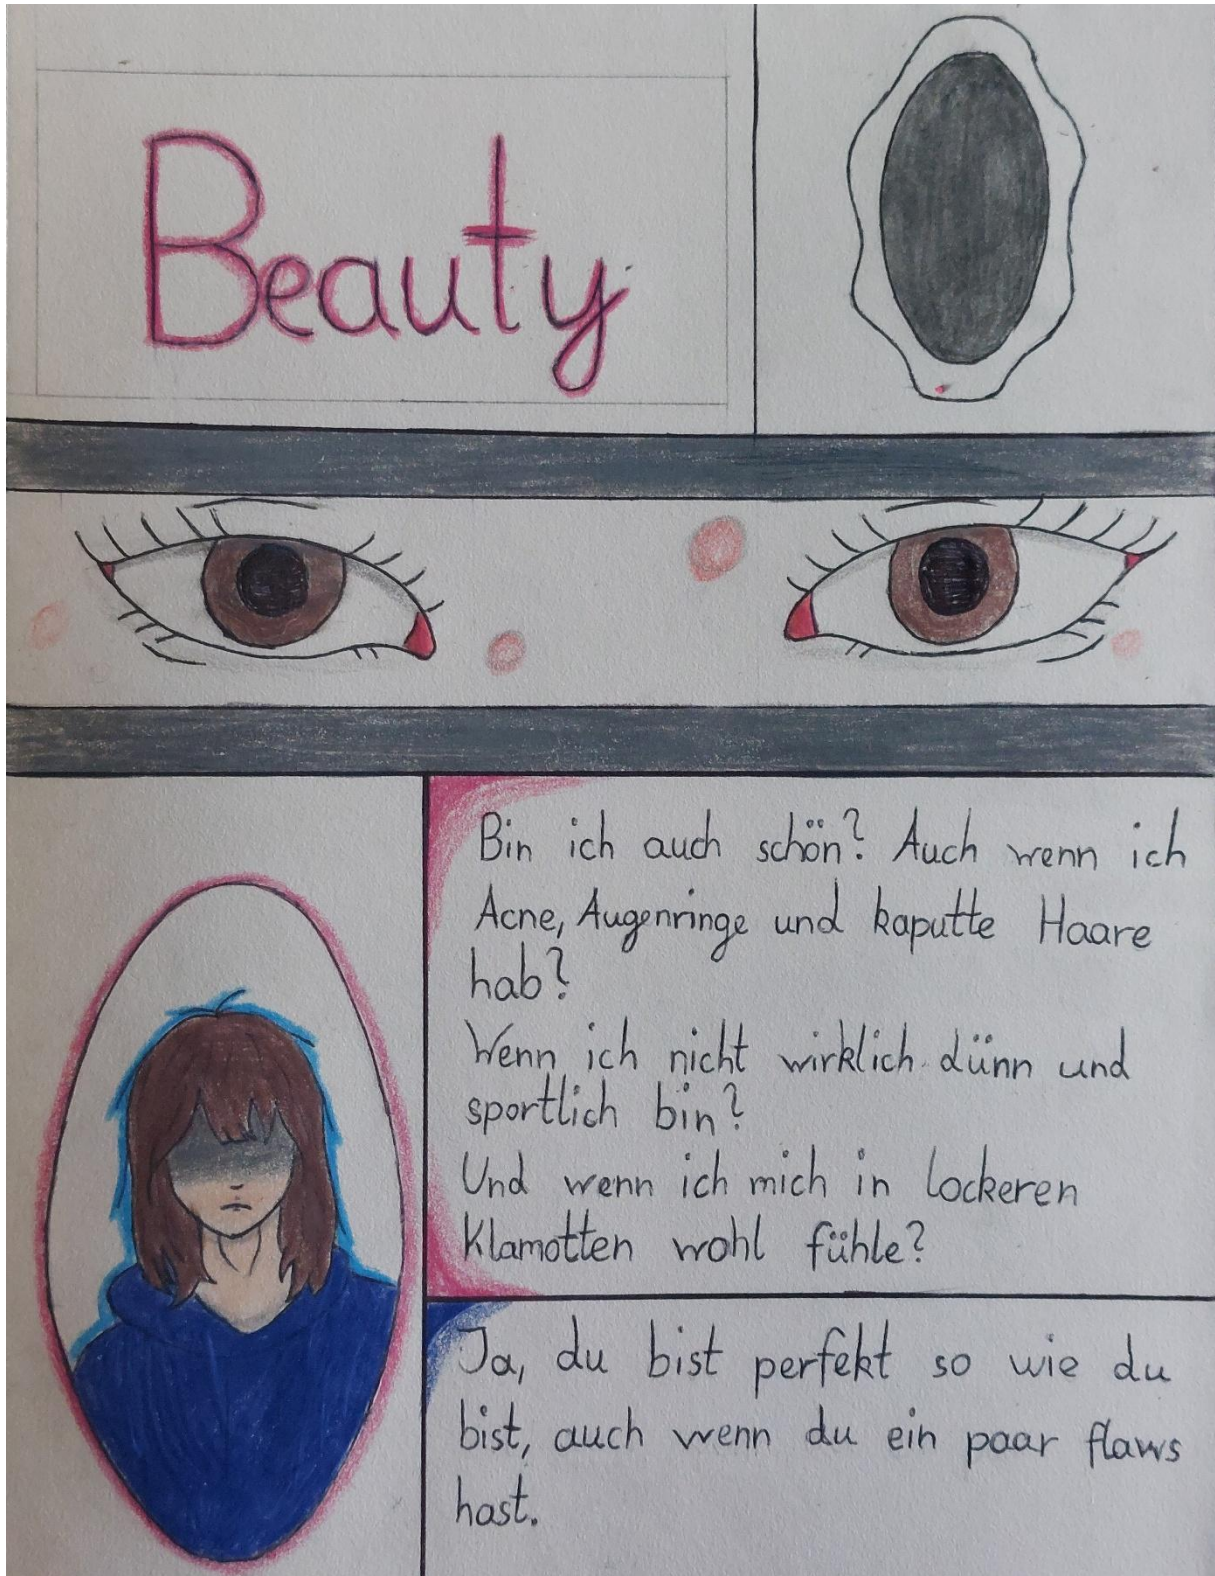 Beauty
Bin ich auch schön? Auch wenn ich
Acne, Augenringe und kaputte Haare
hab?
Wenn ich nicht wirklich dünn und
sportlich bin?
Und wenn ich mich in lockeren
Klamotten wohl fühle?
Ja, du bist perfekt so wie du
bist, auch wenn du ein paar flaws
hast.